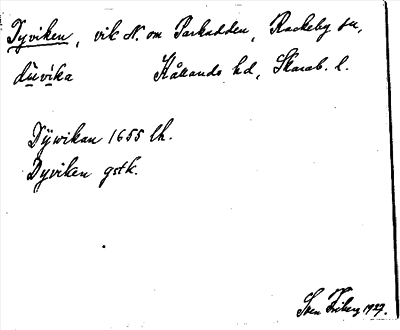 Dyviken, vik N. om Parkudden, Rackeby sn,
du̇vika Kållands hd, Skarab. l.
Dÿwikan 1655 lh.
Dyviken gstk.
Sven Friberg 1927.